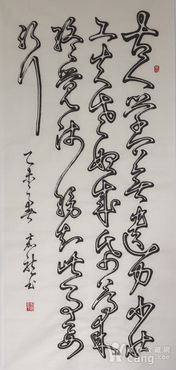 古人学问无遗力少壮
工夫老始成纸上得来
终觉浅绝知此事要
躬行
乙未
书
cang.com